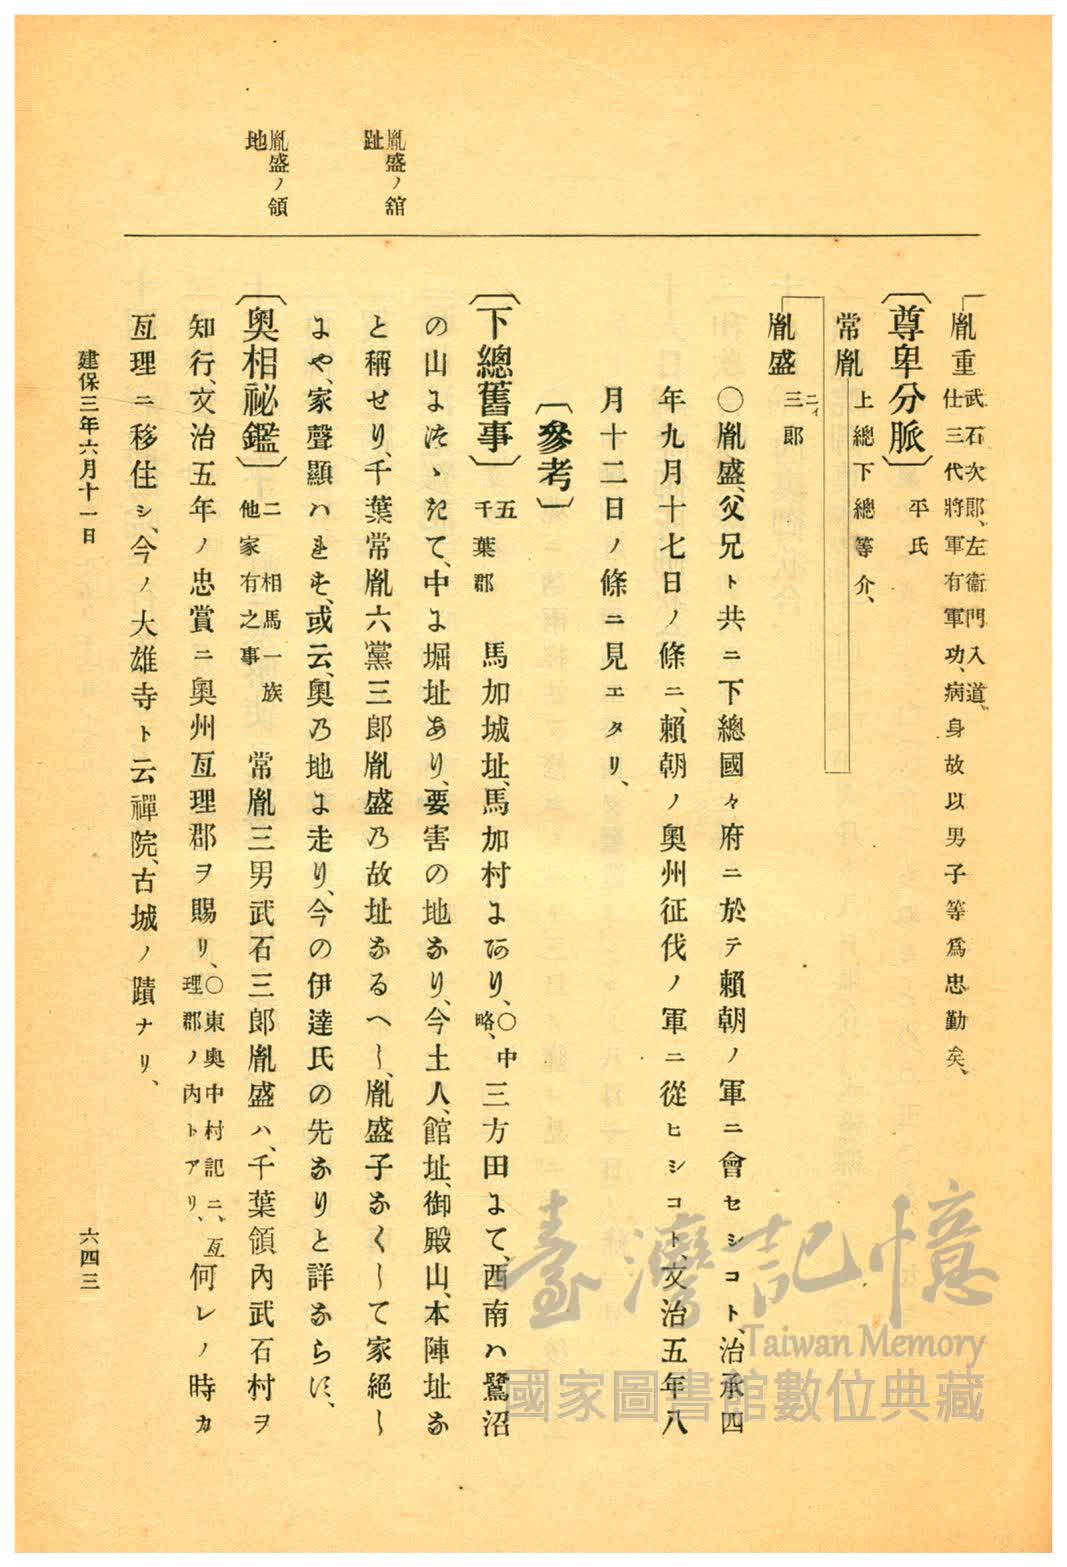 胤重武石次郎、左衞門入道、
仕三代將軍有軍功、病身故以男子等爲忠勤矣、
〔尊卑分脈〕平氏
常胤上總下總等介、
胤盛三郎
二イ
〇胤盛、父兄ト共ニ下總國々府ニ於テ賴朝ノ軍ニ會セシコト、治承四
年九月十七日ノ條ニ、賴朝ノ奧州征伐ノ軍ニ從ヒシコト、文治五年八
月十二日ノ條ニ見エタリ、
〔參考〕
〔下總舊事〕五千葉郡 馬加城址、馬加村にあり、〇中略、三方田にて、西南ハ鷺沼
の山につゝきて、中に堀址あり、要害の地なり、今土人、館址、御殿山、本陣址な
と稱せり、千葉常胤六黨三郎胤盛乃故址なるへし、胤盛子なくして家絕し
にや、家聲顯ハれす、或云、奧乃地に走り、今の伊達氏の先なりと詳ならす、
〔奧相祕鑑〕二相馬一族他家有之事 常胤三男武石三郎胤盛ハ、千葉領內武石村ヲ
知行、文治五年ノ忠賞ニ奧州亙理郡ヲ賜リ、〇東奧中村記ニ、亙理郡ノ內トアリ、何レノ時カ
亙理ニ移住シ、今ノ大雄寺ト云禪院、古城ノ蹟ナリ、
胤盛ノ館
趾
胤盛ノ領
地
建保三年六月十一日
六四三
臺灣記憶
Taiwan Memory
國家圖書館數位典藏